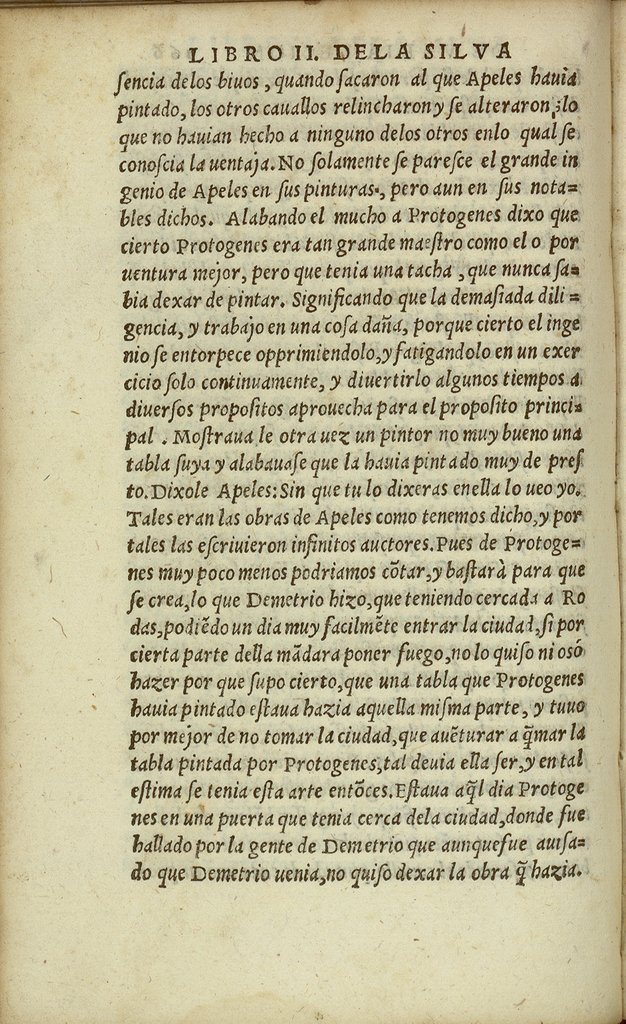 LIBRO II. DE LA SILVA
ſencia delos biuos, quando ſacaron al que Apeles hauia
pintado, los otros cauallos relincharon y ſe alteraron, lo
que no hauian hecho a ninguno delos otros enlo qual ſe
conoſcia la uentaja. No ſolamente ſe pareſce el grande in
genio de Apeles en ſus pinturas, pero aun en ſus nota=
bles dichos. Alabando el mucho a Protogenes dixo que
cierto Protogenes era tan grande maeſtro como el o por
uentura mejor, pero que tenia una tacha, que nunca ſa=
bia dexar de pintar. Significando que la demaſiada dili=
gencia, y trabajo en una coſa daña, porque cierto el inge
nio ſe entorpece opprimiendolo, y fatigandolo en un exer
cicio ſolo continuamente, y diuertirlo algunos tiempos a
diuerſos propoſitos aprouecha para el propoſito princi=
pal. Moſtraua le otra uez un pintor no muy bueno una
tabla ſuya y alabauaſe que la hauia pintado muy de preſ
to. Dixole Apeles: Sin que tu lo dixeras enella lo ueo yo.
Tales eran las obras de Apeles como tenemos dicho, y por
tales las eſcriuieron infinitos auctores. Pues de Protoge=
nes muy poco menos podriamos cõtar, y baſtarà para que
ſe crea, lo que Demetrio hizo, que teniendo cercada a Ro
das, podiẽdo un dia muy facilmẽte entrar la ciudad, ſi por
cierta parte della mãdara poner fuego, no lo quiſo ni osó
hazer por que ſupo cierto, que una tabla que Protogenes
hauia pintado eſtaua hazia aquella miſma parte, y tuuo
por mejor de no tomar la ciudad, que auẽturar a q̃mar la
tabla pintada por Protogenes, tal deuia ella ſer, y en tal
eſtima ſe tenia eſta arte entõces. Eſtaua aq̃l dia Protoge
nes en una puerta que tenia cerca dela ciudad, donde fue
hallado por la gente de Demetrio que aunque fue auiſa=
do que Demetrio uenia, no quiſo dexar la obra q̃ hazia.